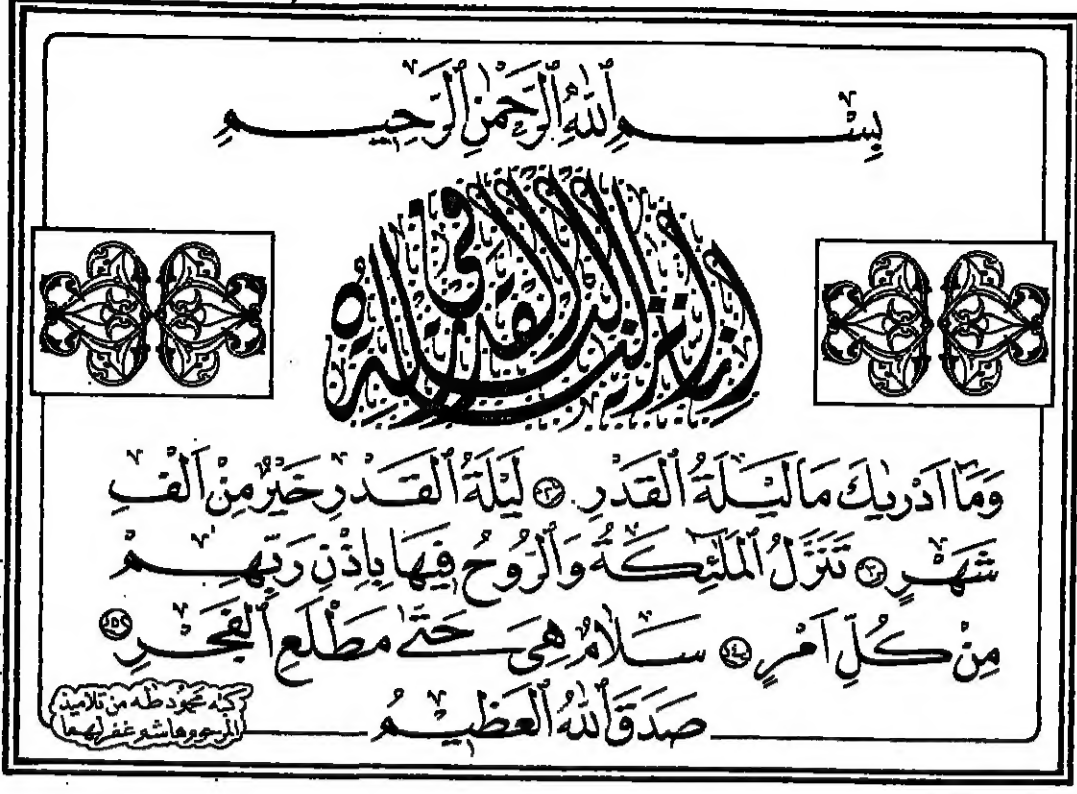 بِسْمِ ٱللَّهِ ٱلرَّحْمَٰنِ ٱلرَّحِيمِ
إنا أنزلناه في ليلة القدر
وَمَا اَدْرٰيكَ مَا لَيْلَةُ ٱلْقَدْرِ ۝٢ لَيْلَةُ ٱلْقَدْرِ خَيْرٌ مِنْ اَلْفِ
شَهْرٍ ۝٣ تَنَزَّلُ ٱلْمَلٰئِكَةُ وَٱلرُّوحُ فِيهَا بِاِذْنِ رَبِّهِمْ
مِنْ كُلِّ اَمْرٍ ۝٤ سَلَامٌ هِيَ حَتّٰى مَطْلَعِ ٱلْفَجْرِ ۝٥
صَدَقَ ٱللَّهُ ٱلْعَظِيمُ
كتبه محمود طه من تلاميذ
المرحوم هاشم غفر لهما